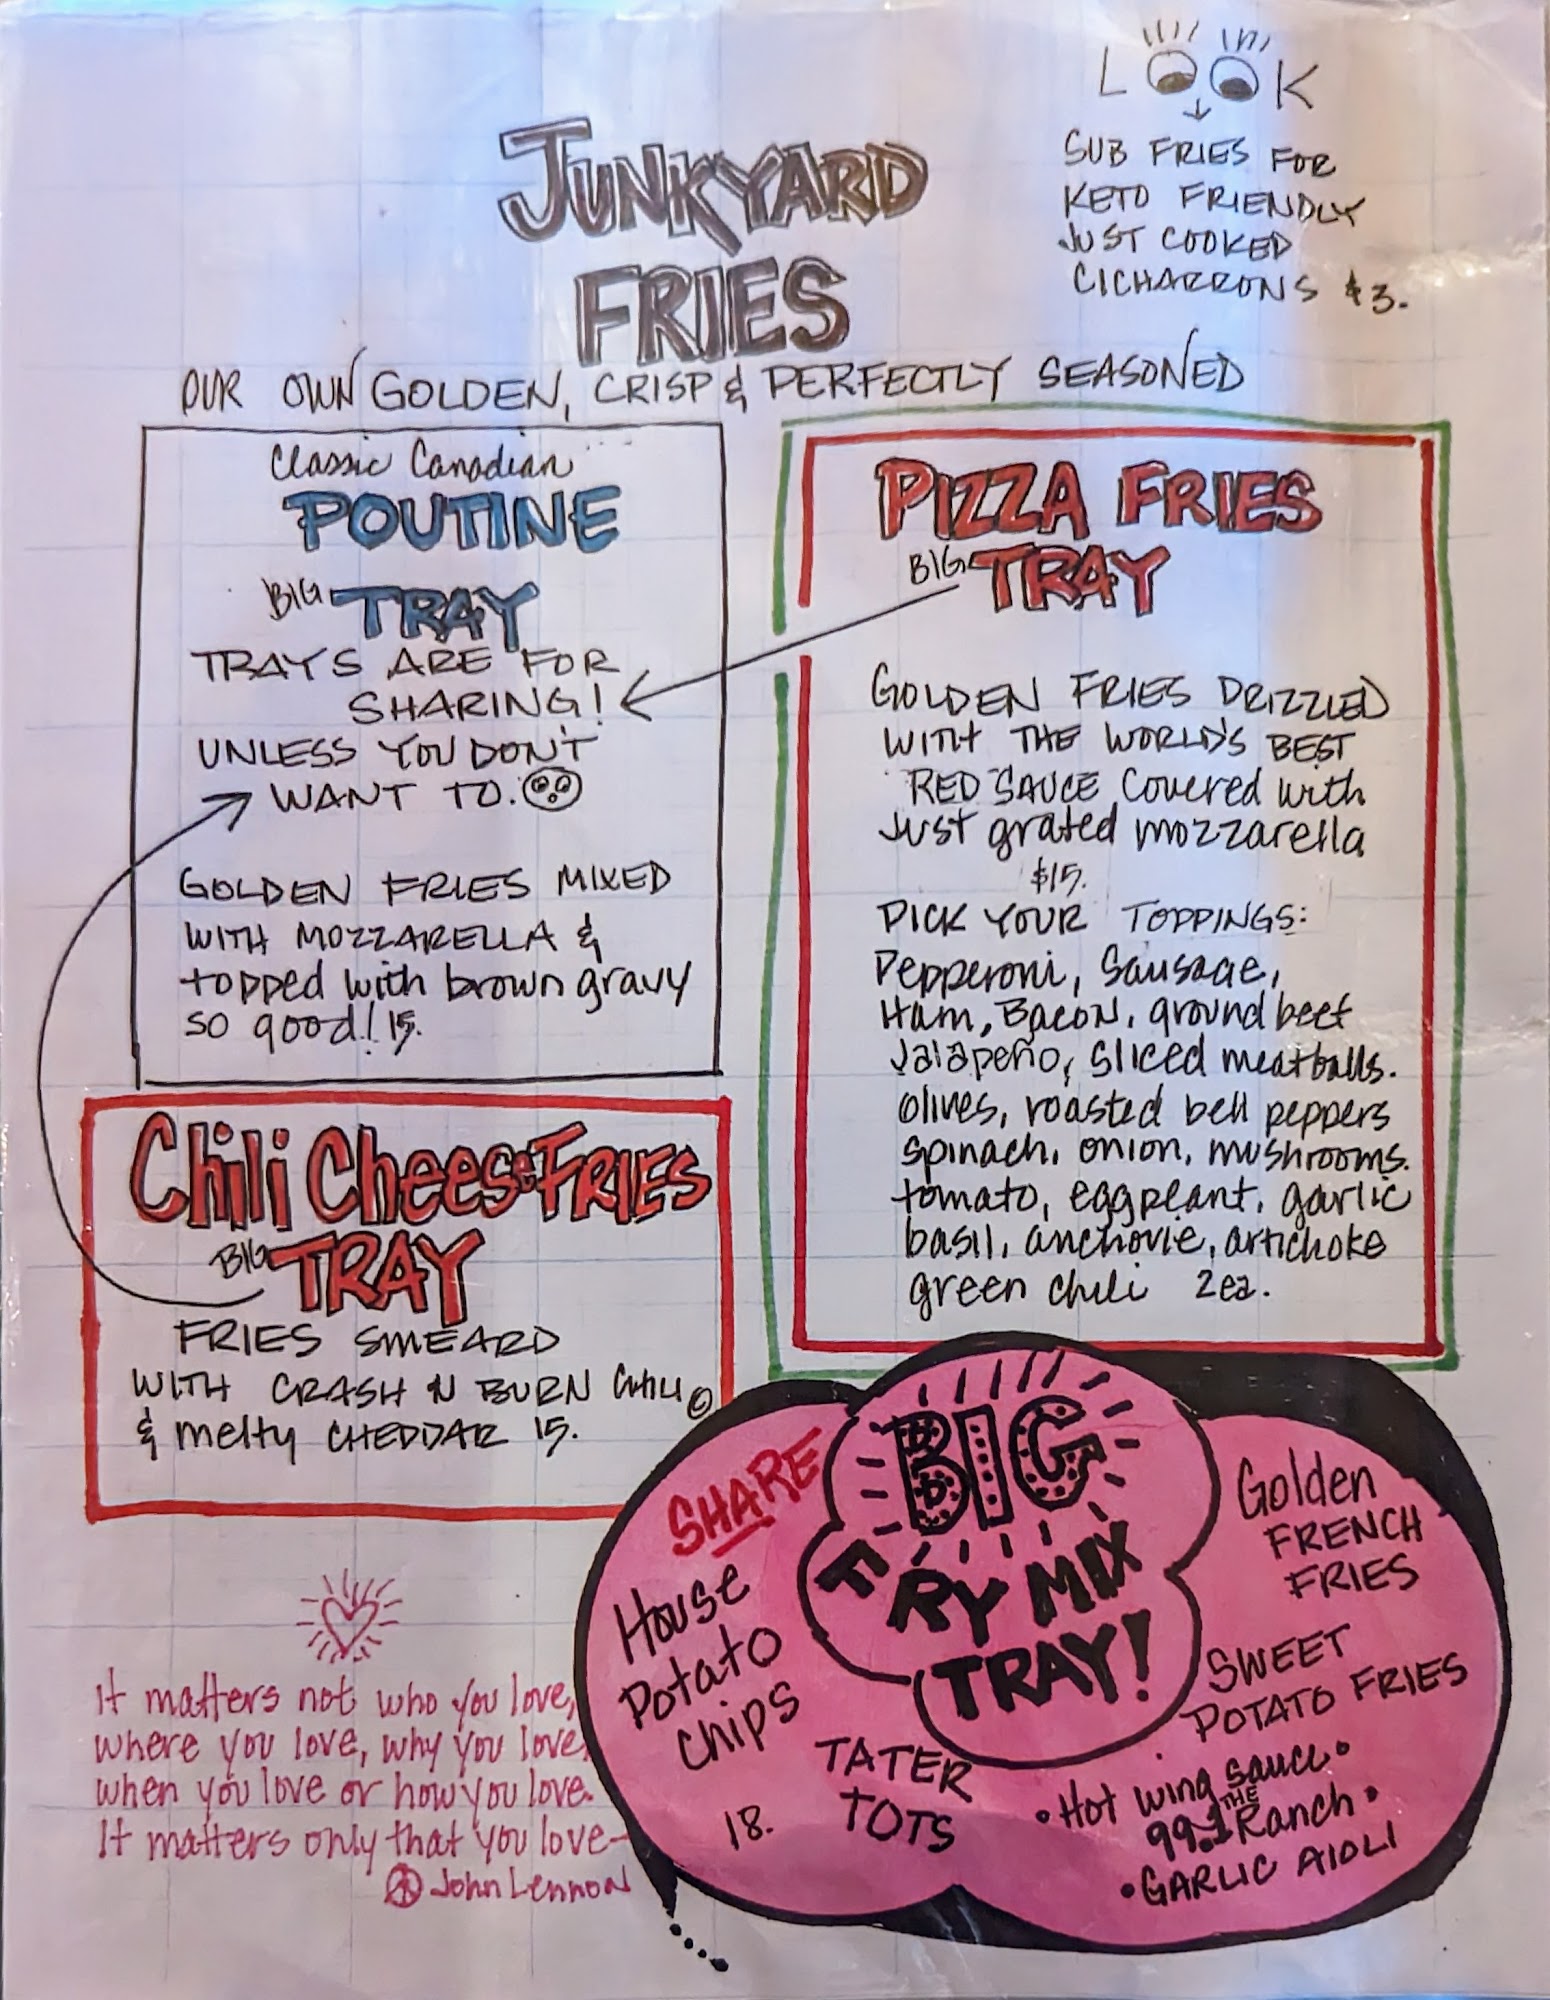 LOOK
SUB FRIES FOR
KETO FRIENDLY
JUST COOKED
CICHARRONS $3.
JUNKYARD
FRIES
OUR OWN GOLDEN, CRISP & PERFECTLY SEASONED
Classic Canadian
POUTINE
BIG TRAY
TRAYS ARE FOR
SHARING!
UNLESS YOU DON'T
WANT TO.
GOLDEN FRIES MIXED
WITH MOZZARELLA &
topped with brown gravy
so good! 15.
PIZZA FRIES
BIG TRAY
GOLDEN FRIES DRIZZLED
WITH THE WORLD'S BEST
RED SAUCE Covered with
Just grated mozzarella
$15.
PICK YOUR TOPPINGS:
Pepperoni, Sausage,
Ham, Bacon, ground beef
Jalapeño, sliced meatballs.
olives, roasted bell peppers
spinach, onion, mushrooms.
tomato, eggpeant, garlic
basil, anchovie, artichoke
green chili 2ea.
Chili Cheese FRIES
BIG TRAY
FRIES SMEARD
WITH CRASH N BURN CHILI
& melty CHEDDAR 15.
SHARE
BIG
FRY MIX
TRAY!
House
Potato
Chips
TATER
TOTS
18.
Golden
FRENCH
FRIES
SWEET
POTATO FRIES
• Hot wing sauce •
99.1 THE Ranch •
• GARLIC AIOLI
It matters not who you love,
where you love, why you love,
when you love or how you love.
It matters only that you love-
John Lennon